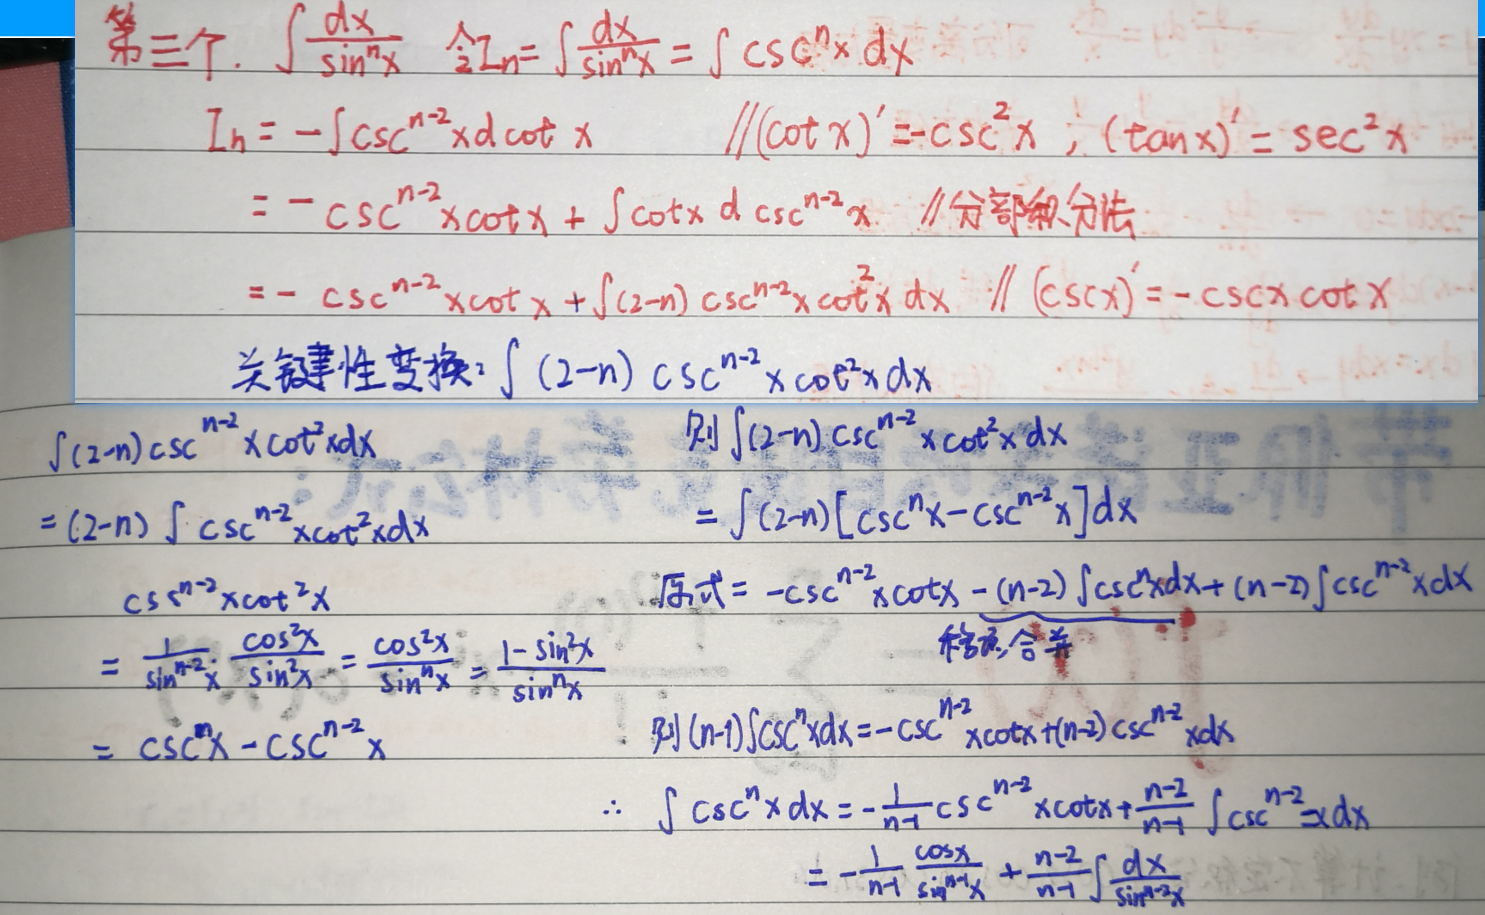 第三个. ∫ dx/sinⁿx 令Iₙ = ∫ dx/sinⁿx = ∫ cscⁿx dx
Iₙ = -∫cscⁿ⁻²x d cot x //(cot x)' = -csc²x ; (tan x)' = sec²x
= - cscⁿ⁻²x cot x + ∫cot x d cscⁿ⁻²x //分部积分法
= - cscⁿ⁻²x cot x + ∫(2-n) cscⁿ⁻²x cot²x dx // (cscx)' = -cscx cot x
关键性变换: ∫ (2-n) cscⁿ⁻²x cot²x dx
∫(2-n) cscⁿ⁻²x cot²x dx
= (2-n) ∫ cscⁿ⁻²x cot²x dx
cscⁿ⁻²x cot²x
= 1/sinⁿ⁻²x · cos²x/sin²x = cos²x/sinⁿx = (1-sin²x)/sinⁿx
= cscⁿx - cscⁿ⁻²x
则 ∫(2-n) cscⁿ⁻²x cot²x dx
= ∫(2-n) [cscⁿx - cscⁿ⁻²x] dx
原式 = -cscⁿ⁻²x cotx - (n-2) ∫cscⁿx dx + (n-2) ∫cscⁿ⁻²x dx
移项,合并
则 (n-1) ∫cscⁿx dx = -cscⁿ⁻²x cotx + (n-2) cscⁿ⁻²x dx
∴ ∫ cscⁿx dx = - 1/(n-1) cscⁿ⁻²x cotx + (n-2)/(n-1) ∫ cscⁿ⁻²x dx
= - 1/(n-1) cosx/sinⁿ⁻¹x + (n-2)/(n-1) ∫ dx/sinⁿ⁻²x